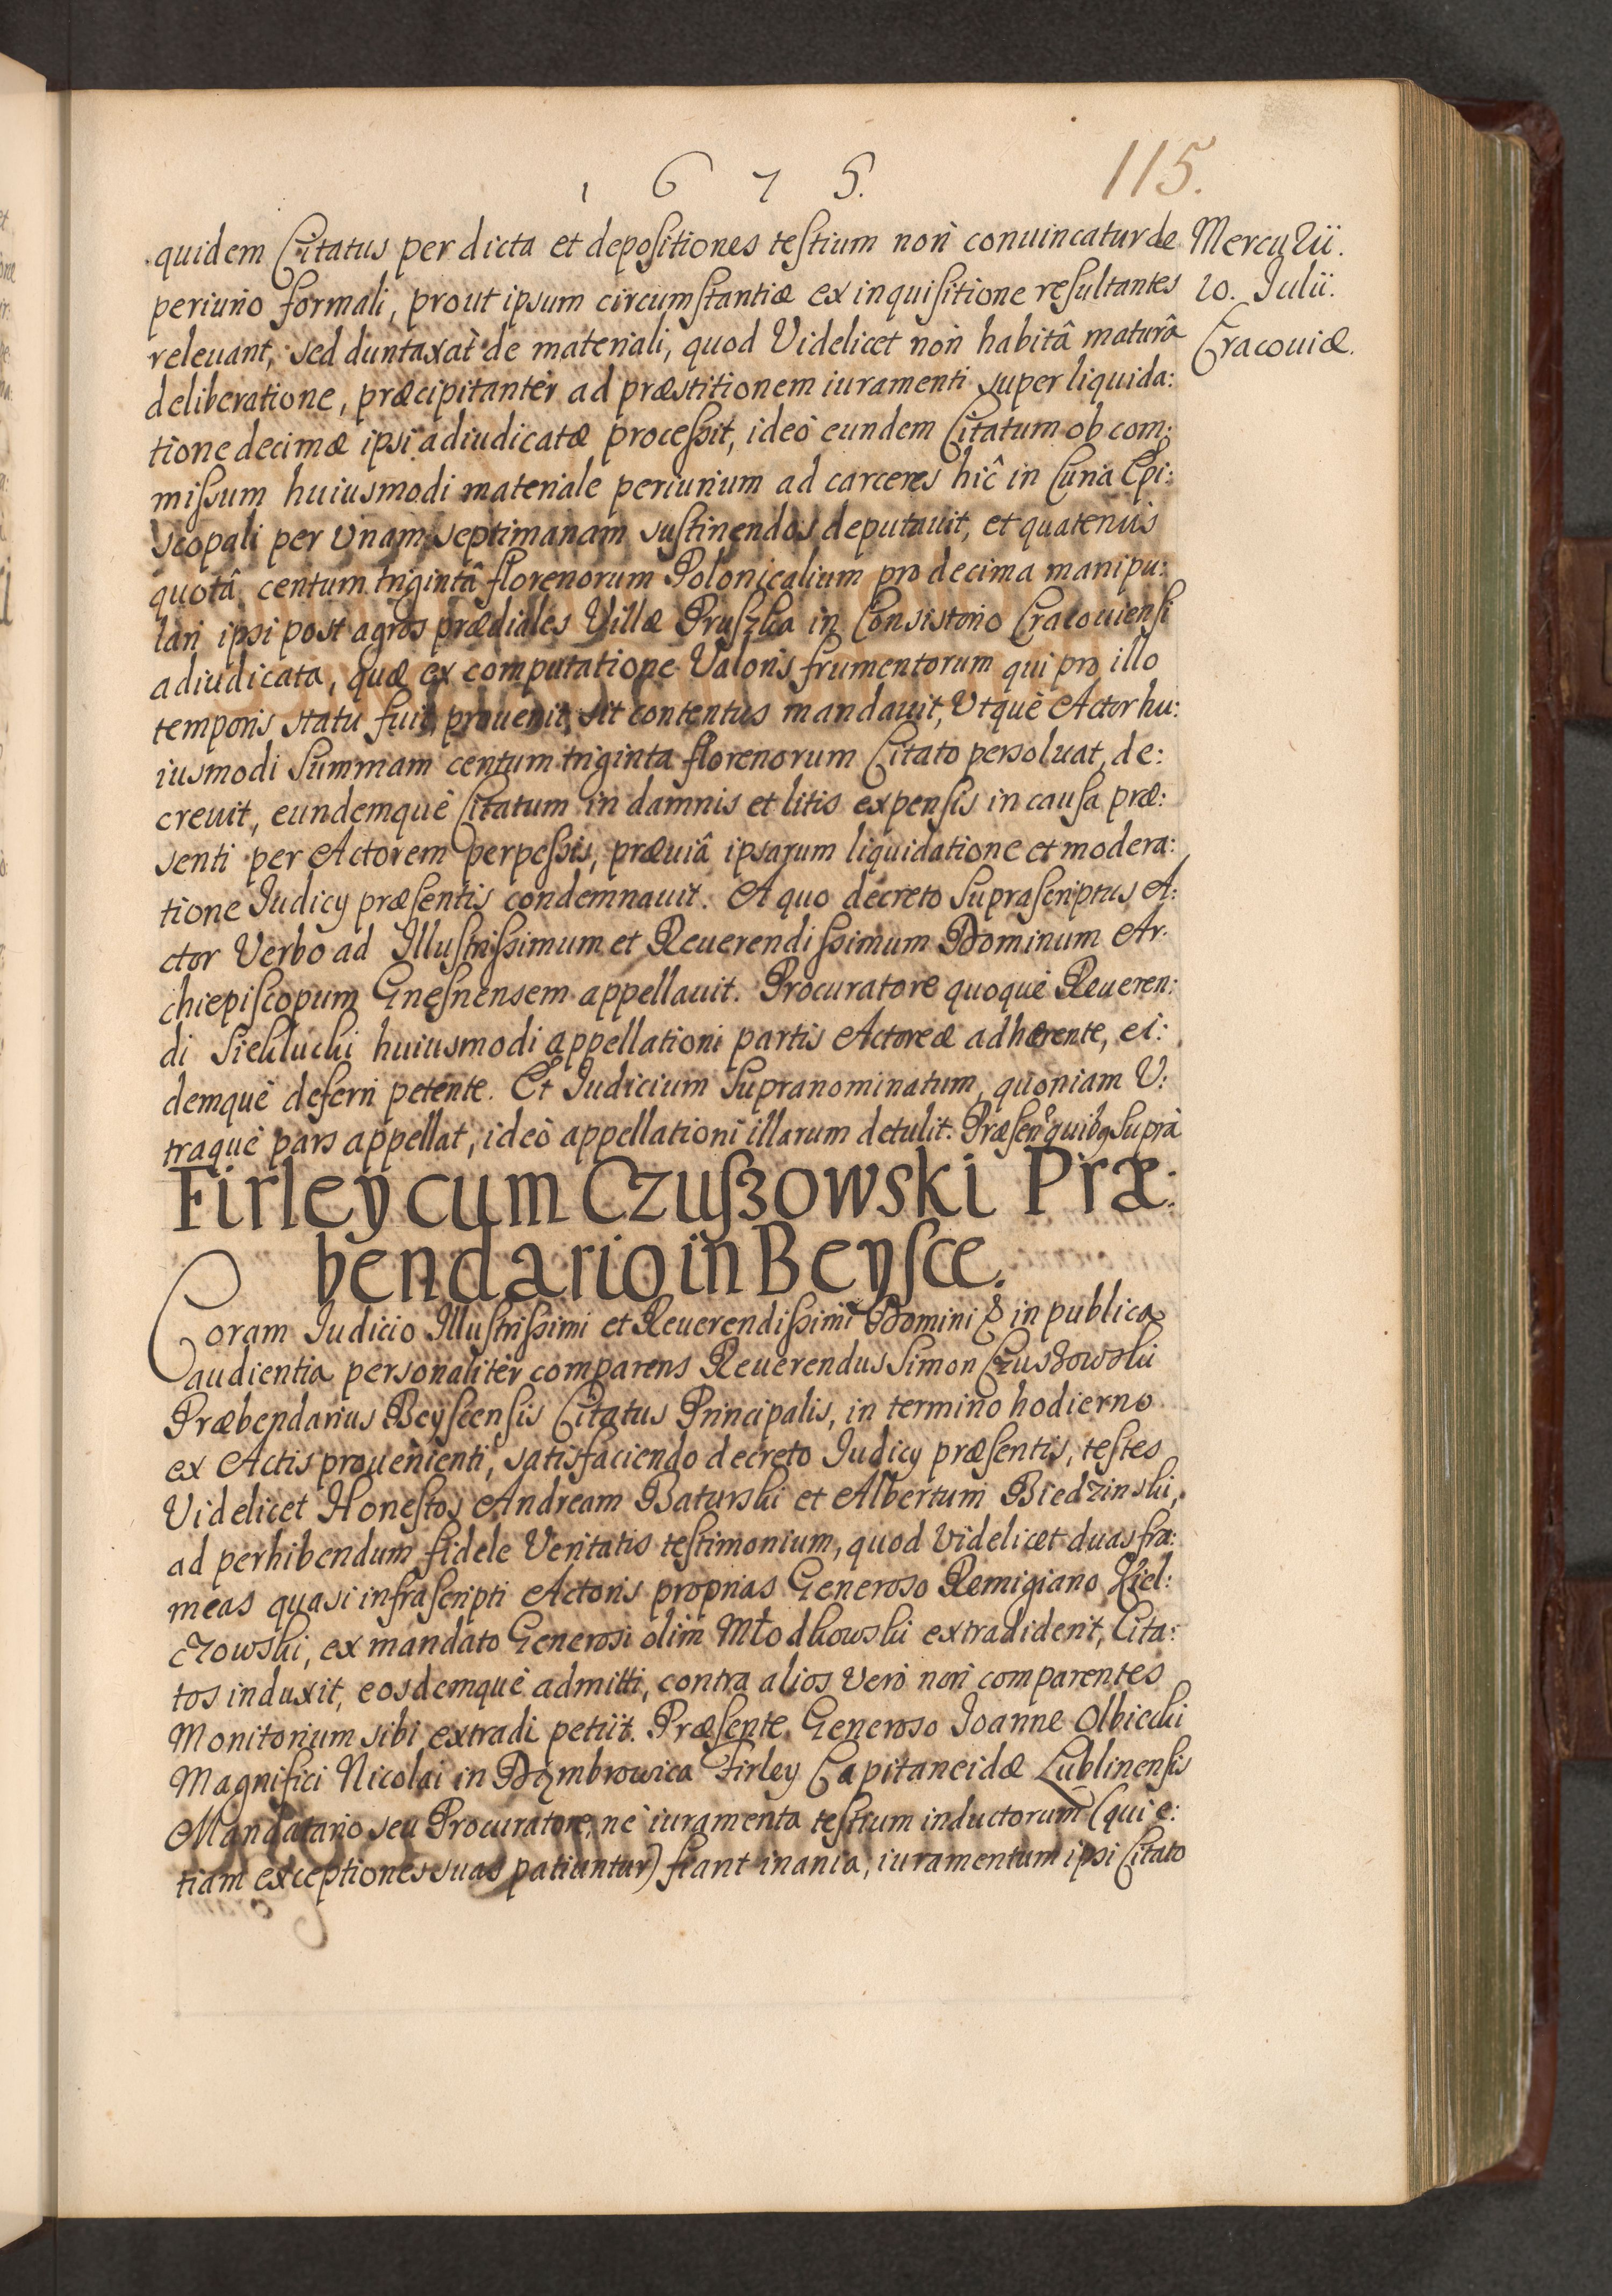 1675.
115.
quidem Citatus per dicta et depositiones testium non conuincatur de
Mercurii.
periurio formali, prout ipsum circumstantiæ ex inquisitione resultantes
10. Julii.
releuant, sed duntaxat de materiali, quod Videlicet non habitâ maturâ
Cracouiæ.
deliberatione, præcipitantèr ad præstitionem iuramenti super liquida:
tione decimæ ipsi adiudicatæ processit, ideò eundem Citatum ob com:
missum huiusmodi materiale periurium ad carceres hîc in Curia Epi:
scopali per Vnam septimanam sustinendos deputauit, et quatenùs
quotâ centum trigintâ florenorum Polonicalium pro decima manipu:
lari ipsi post agros prædiales Villæ Pruszka in Consistorio Cracouiensi
adiudicata, quæ ex computatione Valoris frumentorum qui pro illo
temporis statu fuit, prouenit, sit contentus mandauit, Vtquè Actor hu:
iusmodi Summam centum triginta florenorum Citato persoluat, de:
creuit, eundemquè Citatum in damnis et litis expensis in causa præ:
senti per Actorem perpessis, præuiâ ipsarum liquidatione et modera:
tione Judicy præsentis condemnauit. A quo decreto Suprascriptus A:
ctor Verbo ad Illustrissimum et Reuerendissimum Dominum Ar:
chiepiscopum Gnesnensem appellauit. Procuratore quoquè Reueren:
di Siekluchi huiusmodi appellationi partis Actoreæ adhærente, ei:
demquè deferri petente. Et Judicium Supranominatum, quoniam V:
traquè pars appellat, ideò appellationi illarum detulit. Præsen: quibg Suprà
Firley cum Czuszowski Præ:
bendario in Beysce.
Coram Judicio Illustrissimi et Reuerendissimi Domini & in publica
audientia personalitèr comparens Reuerendus Simon Czuszowski
Præbendarius Beyscensis Citatus Principalis, in termino hodierno
ex Actis prouenienti, satisfaciendo decreto Judicy præsentis, testes
Videlicet Honestos Andream Baturski et Albertum Biedzinski,
ad perhibendum fidele Veritatis testimonium, quod Videlicet duas fra:
meas quasi infrascripti Actoris proprias Generoso Remigiano Kiel:
czowski, ex mandato Generosi olim Młodkowski extradiderit, Cita:
tos induxit, eosdemquè admitti, contra alios Verò non comparentes
Monitorium sibi extradi petiit. Præsente Generoso Joanne Olbiecki
Magnifici Nicolai in Dąmbrowica Firley Capitaneidæ Lublinensis
Mandatario seu Procuratore, nè iuramenta testium inductorum (qui e:
tiam exceptiones suas patiuntur) fiant inania, iuramentum ipsi Citato